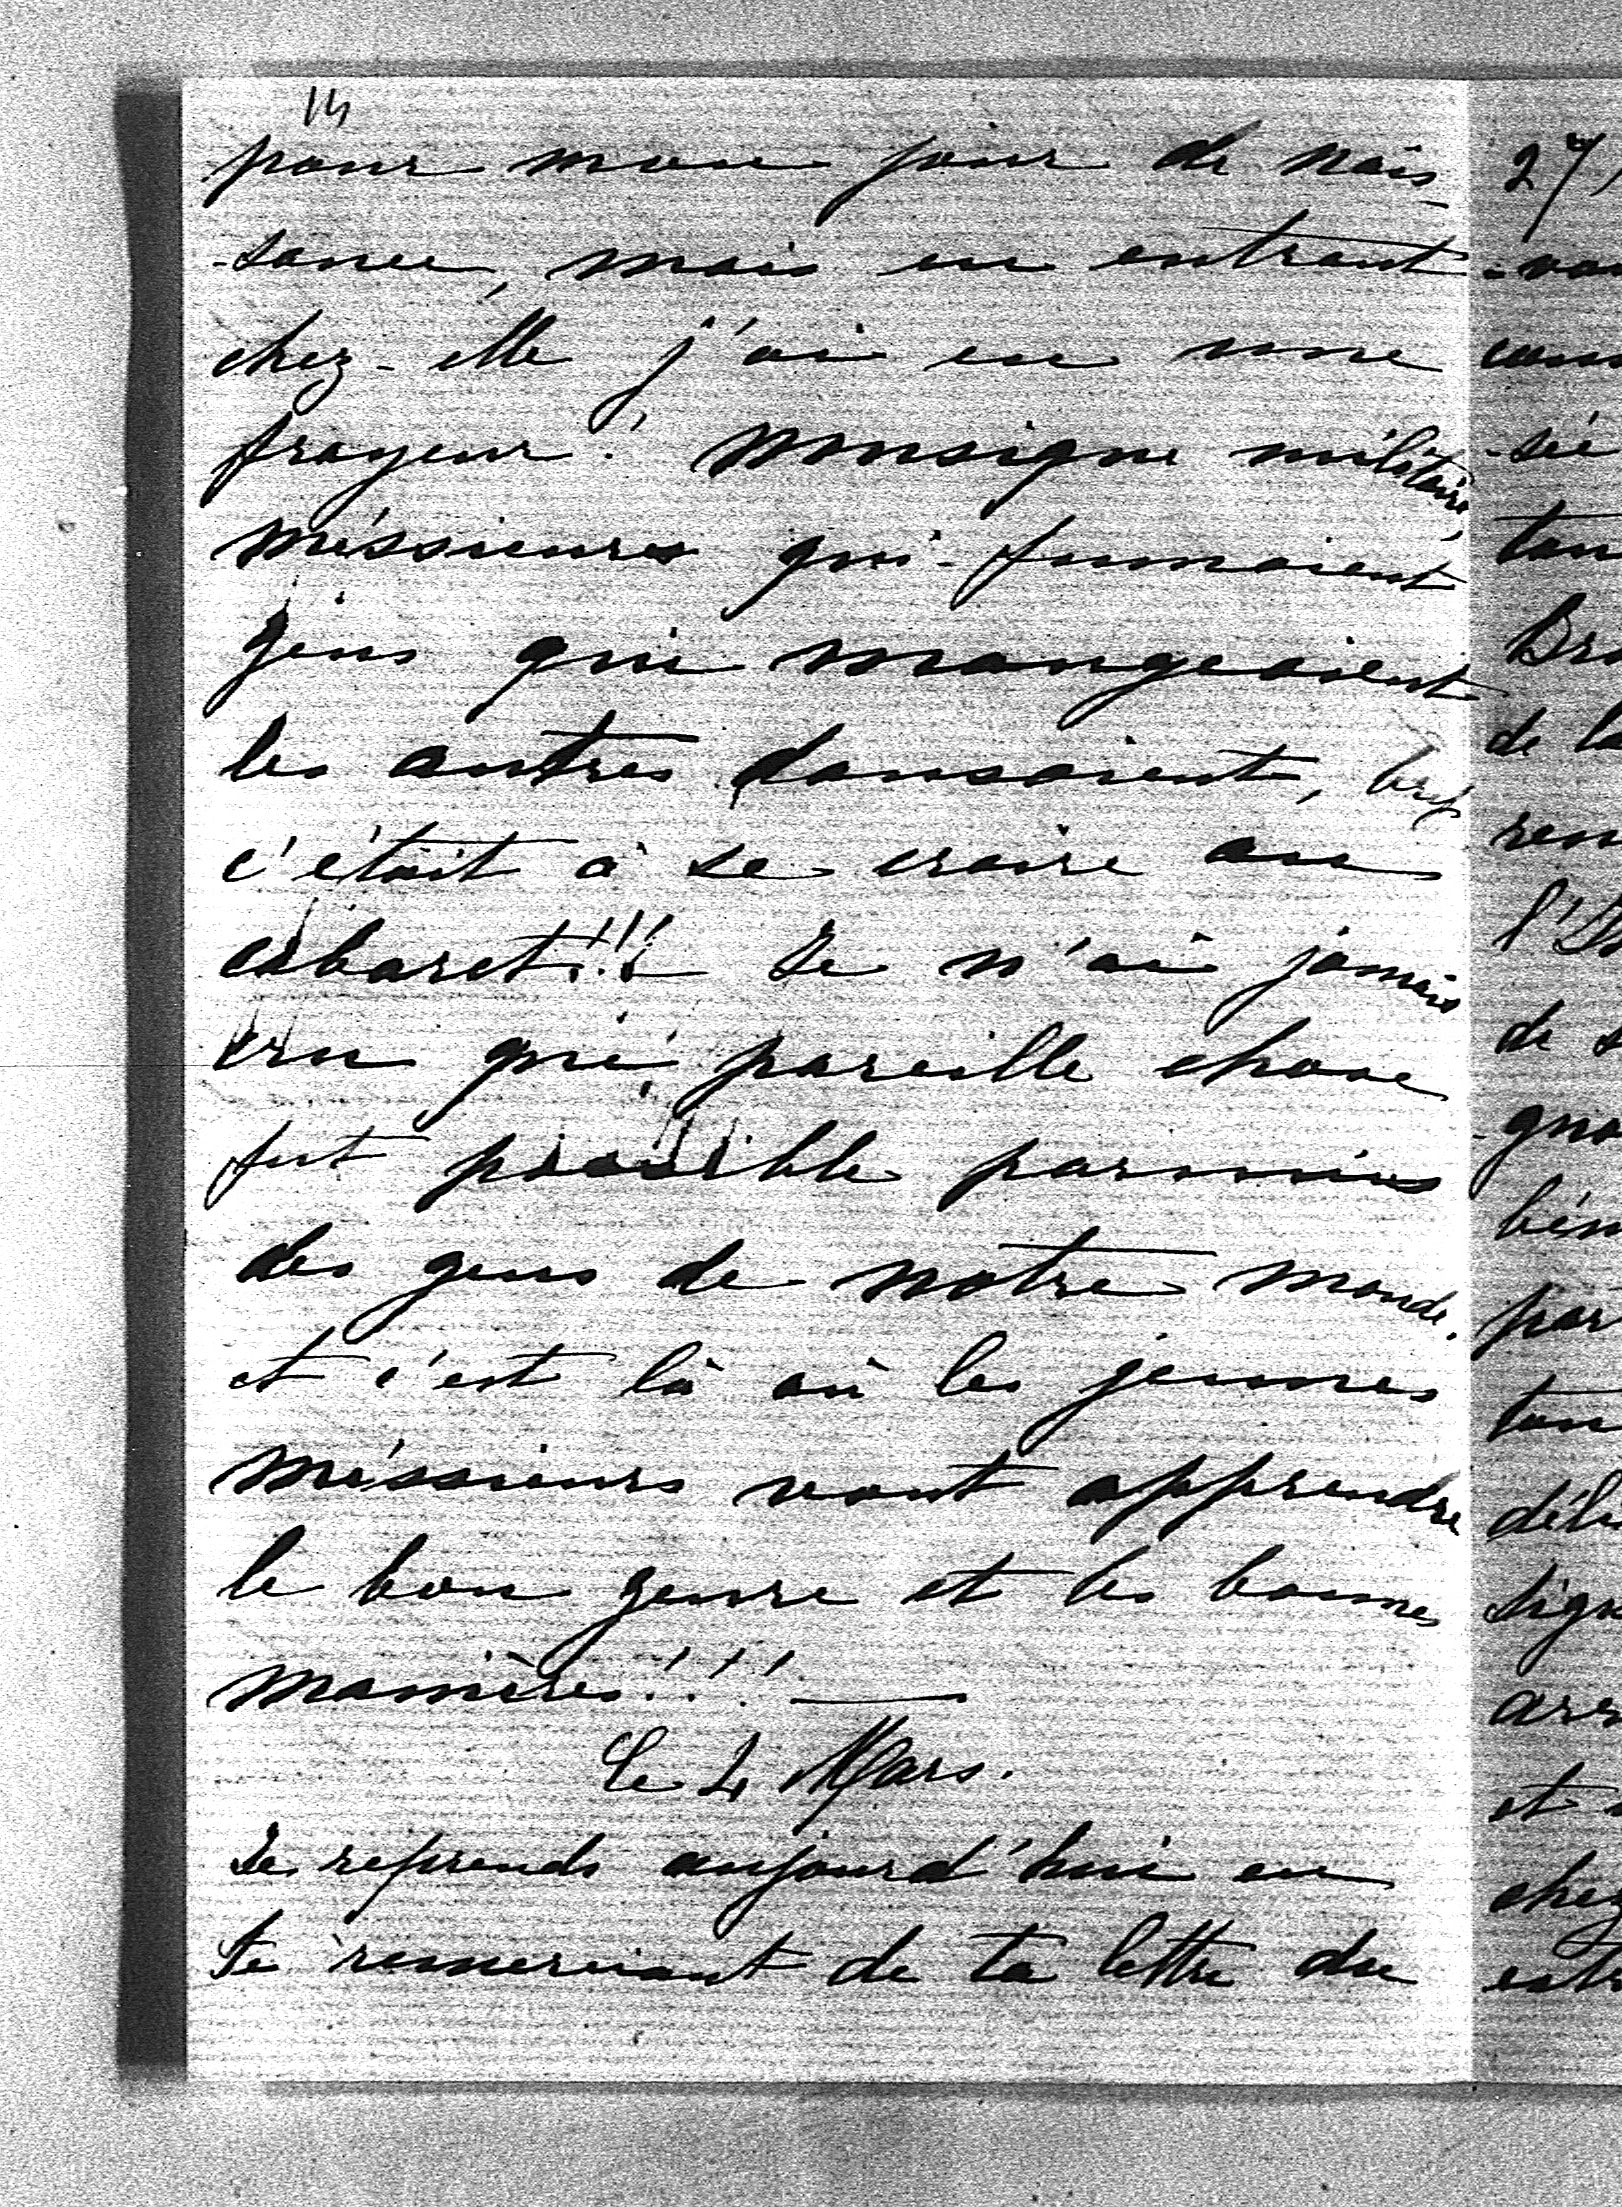 14
pour mon jour de nais-
-sance, mais en entrant
chez-elle j'ai eu une
frayeur! Musique militaire,
méssieurs qui fumaient
gens qui mangeaient
les autres dansaient, bref
c'était à se croire au
cabaret!!! Je n'ai jamais
cru que pareille chose
fut possible parmis
des gens de notre monde.
et c'est là où les jeunes
méssieurs vont apprendre
le bon genre et les bonnes
manières!!! —
Le 4 Mars.
Je reprends aujourd'hui en
te remerciant de ta lettre du